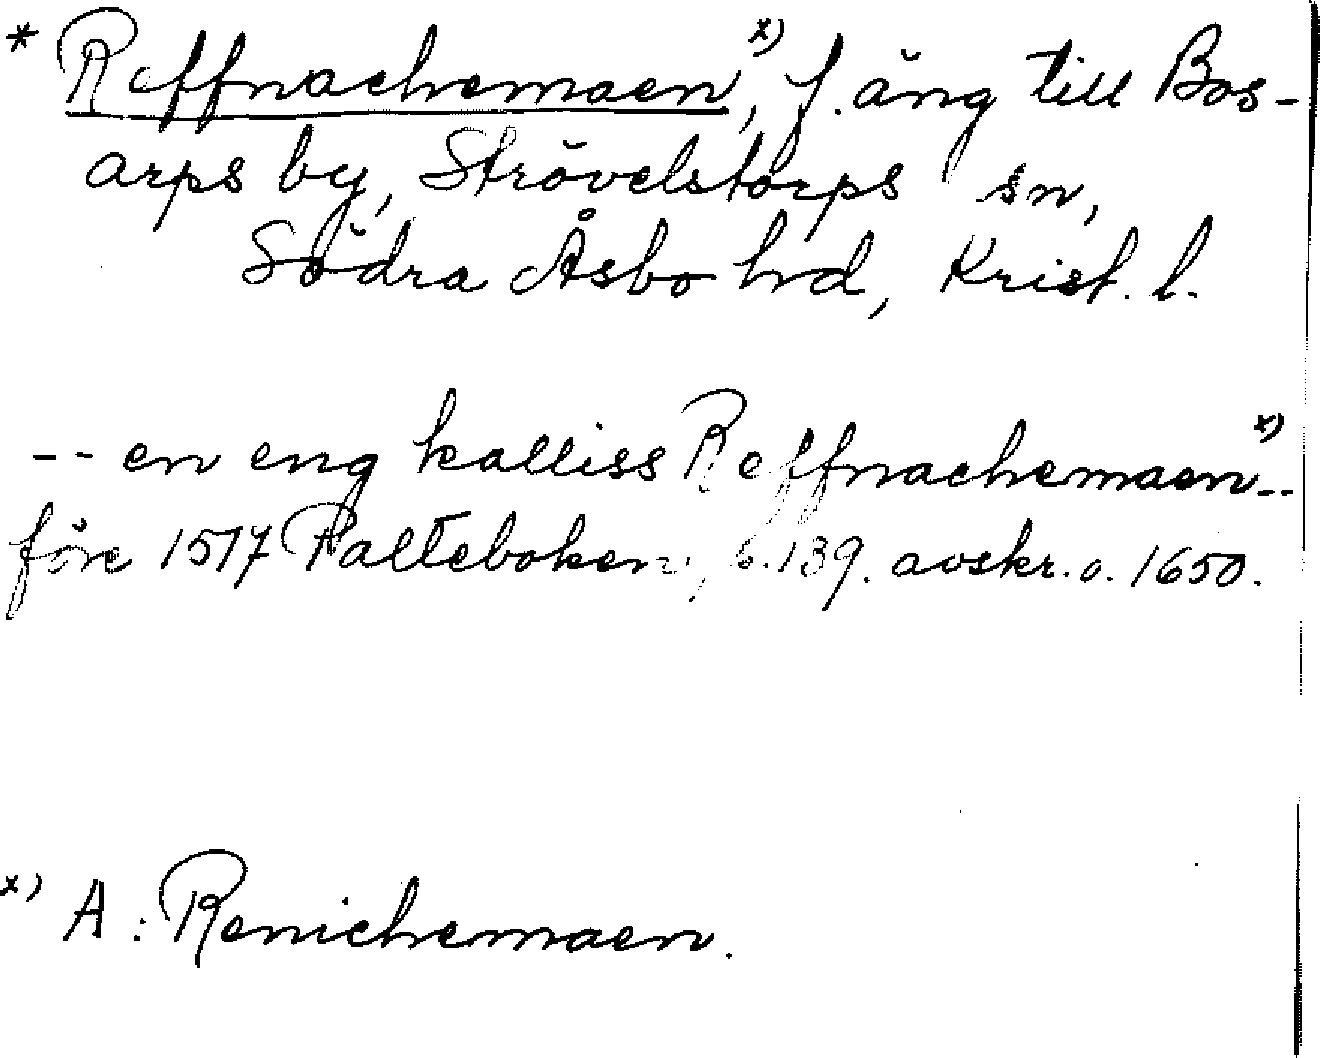 * Reffnachemaen x), f. äng till Bos-
arps by, Strövelstorps sn,
Södra Åsbo hd, Krist. l.
-- en eng kalliss Reffnachemaen x) --
före 1517 Palteboken, s. 139. avskr. o. 1650.
x) A: Renichemaen.